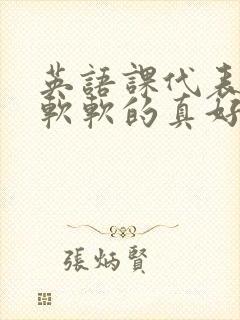 英語課代表
軟軟的真好
張炳賢